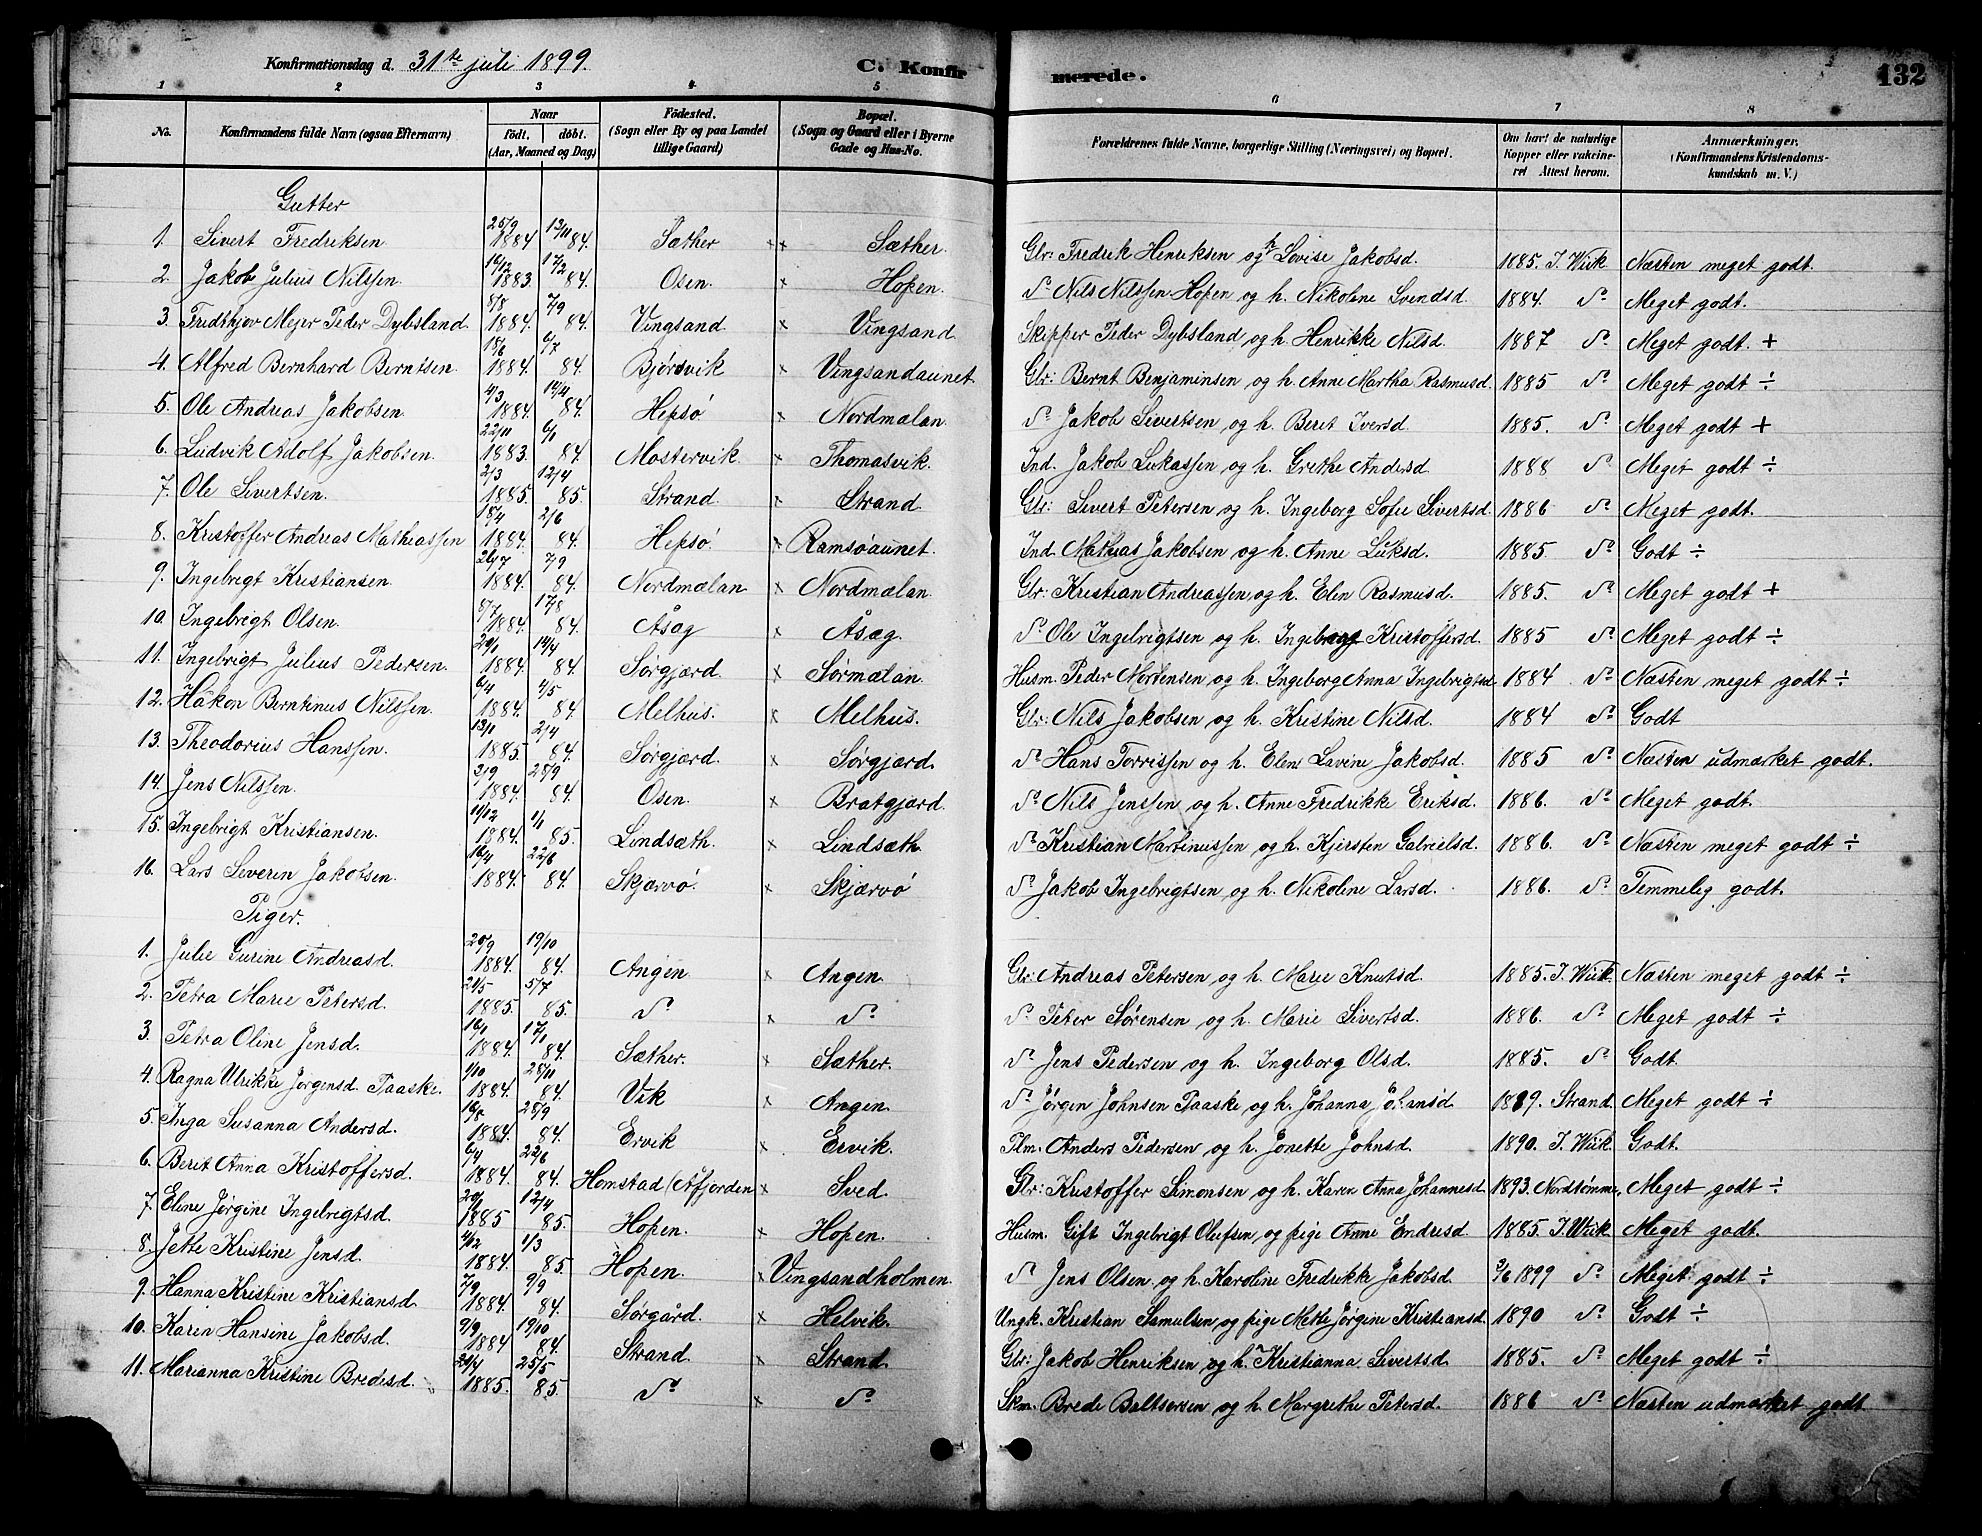 Konfirmationsdag d. 31te juli 1899. C. Konfirmerede. 132
1 2 3 4 5 6 7 8
No. Konfirmandens fulde Navn (ogsaa Efternavn) Naar födt. döbt. (Aar, Maaned og Dag) Födested. (Sogn eller By og paa Landet tillige Gaard) Bopæl. (Sogn og Gaard eller i Byerne Gade og Hus-No. Forældrenes fulde Navne, borgerlige Stilling (Næringsvei) og Bopæl. Om havt de naturlige Kopper eller vaccineret Attest herom. Anmærkninger. (Konfirmandens Kristendomskundskab m. V.)
Gutter
1. Sivert Fredriksen 25/9 1884 13/11 84. Sæther × × Sæther. Glr: Fredrik Henriksen og h. Lovise Jakobsd. 1885. J. Wiik Næsten meget godt.
2. Jakob Julius Nilssen 16/12 1883. 17/2 84. Osen × Hopen. do Nils Nilssen Hopen og h. Nikoline Svendsd. 1884. do Meget godt.
3. Fridthjov Mejer Peder Dybsland 8/8 1884. 7/9 84. Vingsand × Vingsand Skipper Peder Dybsland og h. Henrikke Nilsd. 1887 do Meget godt. +
4. Alfred Bernhard Berntsen 18/6 1884. 6/7 84. Bjørsvik × Vingsandaunet Glr: Bernt Benjaminsen og h. Anne Martha Rasmusd. 1885 do Meget godt ÷
5. Ole Andreas Jakobsen 4/3 1884. 14/4 84. Hepsø × Nordmælan. do Jakob Sivertsen og h. Berit Iversd. 1885. do Meget godt +
6. Ludvik Adolf Jakobsen. 22/11 1883. 6/1 84. Mostervik × Thomasvik. Ind. Jakob Lukassen og h. Grethe Andersd. 1888 do Meget godt ÷
7. Ole Sivertsen. 2/3 1885. 12/4 85. Strand × Strand Glr: Sivert Petersen og h. Ingeborg Sofie Sivertsd. 1886 do Meget godt.
8. Kristoffer Andreas Mathiassen 18/4 1884. 2/6 84. Hepsø. × Ramsøaunet. Ind. Mathias Jakobsen og h. Anne Luksd. 1885 do Godt ÷
9. Ingebrigt Kristiansen. 26/7 1884. 7/9 84. Nordmælan × Nordmælan. Glr: Kristian Andreassen og h. Elen Rasmusd. 1885. do Meget godt +
10. Ingebrigt Olsen. 8/7 1884. 17/8 84. Åsag × Åsag. do Ole Ingebrigtsen og h. Ingeborg Kristoffersd. 1885 do Meget godt ÷
11. Ingebrigt Julius Pedersen. 20/1 1884. 14/4 84. Sørgjærd. × Sørmælan. Husm. Peder Mortensen og h. Ingeborg Anna Ingebrigtsd. 1884. do Næsten meget godt ÷
12. Håkon Berntinus Nilssen. 6/4 1884. 4/5 84. Melhus. × Melhus. Glr: Nils Jakobsen og h. Kristine Nilsd. 1884 do Godt
13. Theodorius Hanssen. 13/1 1885. 2/4 84. Sørgjærd. × Sørgjærd. do Hans Torrissen og h. Elen Lavine Jakobsd. 1885 do Næsten udmærket godt.
14. Jens Nilssen. 2/9 1884. 28/9 84. Osen × Bratgjærd. do Nils Jenssen og h. Anne Fredrikke Eriksd. 1886. do Meget godt.
15. Ingebrigt Kristiansen. 11/12 1884. 1/1 85. Lindsæth. × Lindsæth. do Kristian Martinussen og h. Kjersten Gabrielsd. 1886. do Næsten meget godt ÷
16. Lars Severin Jakobsen. 16/4 1884. 22/6 84. Skjærvø. × Skjærvø do Jakob Ingebrigtsen og h. Nikoline Larsd. 1886. do Temmelig godt.
Piger.
1. Julie Gurine Andreasd. 20/9 1884. 19/10 84. Angen × Angen. Glr: Andreas Petersen og h. Marie Knutsd. 1885. J. Wiik Næsten meget godt ÷
2. Petra Marie Petersd. 21/5 1885. 5/7 85. do × do Peter Sørensen og h. Marie Sivertsd. 1886. do Meget godt ÷
3. Petra Oline Jensd. 16/1 1884. 17/1 84. Sæther. × Sæther. do Jens Pedersen og h. Ingeborg Olsd. 1885. do Godt.
4. Ragna Ulrikke Jørgensd. Paaske. 1/10 1884. 28/11 84. Vik × Angen. do Jørgen Johnsen Paaske og h. Johanna Johansd. 1889. Strand. Meget godt ÷
5. Inga Susanna Andersd. 16/8 1884. 28/9 84. Ervik × Ervik. Plm. Anders Pedersen og h. Jonette Johnsd. 1890. J. Wiik Godt.
6. Berit Anna Kristoffersd. 6/4 1884. 22/6 84. Homstad (Åfjorden × Sved. Glr: Kristoffer Simonsen og h. Karen Anna Johannesd. 1893. Nordtømme. Meget godt ÷
7. Eline Jørgine Ingebrigtsd. 20/1 1885 12/4 85. Hopen. × Hopen. Husm. Gift Ingebrigt Olufsen og pige Anne Endresd. 1885. J. Wiik Meget godt.
8. Jette Kristine Jensd. 4/12 1884. 1/3 85. Hopen. × Vingsandholmen. do Jens Olsen og h. Karoline Fredrikke Jakobsd. 2/6 1899 do Meget godt ÷
9. Hanna Kristine Kristiansd. 7/9 1884. 9/9 84. Sørgård. × Helvik. Ungk. Kristian Samulsen og pige Mette Jørgine Kristiansd. 1890 do Godt ÷
10. Karen Hansine Jakobsd. 9/9 1884 19/10 84. Strand × Strand. Glr: Jakob Henriksen og h. Kristianna Sivertsd. 1885. do Meget godt ÷
11. Marianna Kristine Bredesd. 20/4 1885. 25/5 85. do × do Skm. Brede Baltsersen og h. Margrethe Petersd. 1886 do Næsten udmærket godt